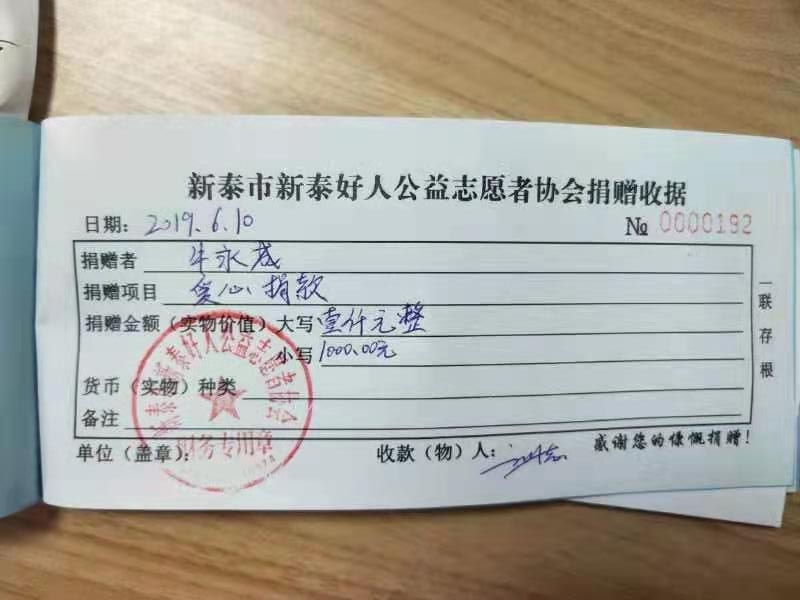 新泰市新泰好人公益志愿者协会捐赠收据
日期: 2019.6.10 № 0000192
捐赠者 牛永成
捐赠项目 爱心捐款
捐赠金额(实物价值)大写 壹仟元整
小写 1000.00元
货币(实物)种类
备注
单位(盖章): 收款(物)人:
感谢您的慷慨捐赠!
一联存根
新泰市新泰好人公益志愿者协会
财务专用章